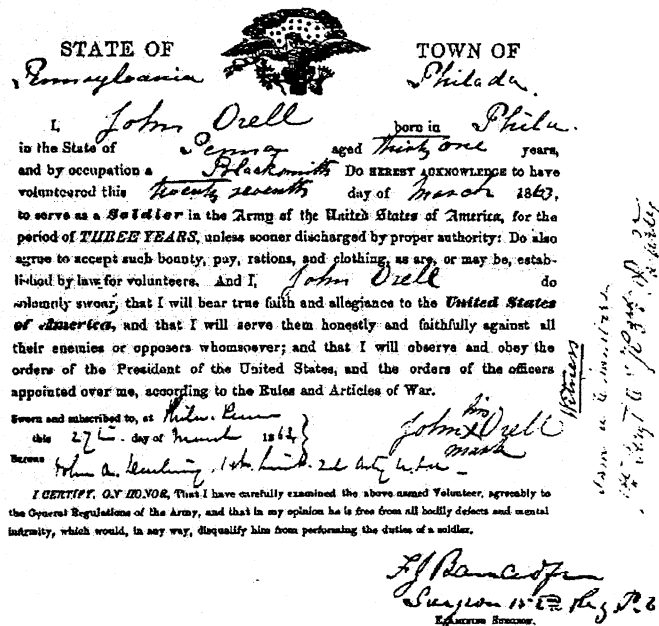 STATE OF TOWN OF
Pennsylvania Philada.
I, John Orell born in Phila.
in the State of Penna aged thirty one years,
and by occupation a Blacksmith Do HEREBY ACKNOWLEDGE to have
volunteered this twenty seventh day of March 1863,
to serve as a Soldier in the Army of the United States of America, for the
period of THREE YEARS, unless sooner discharged by proper authority: Do also
agree to accept such bounty, pay, rations, and clothing, as are, or may be, estab-
lished by law for volunteers. And I, John Orell do
solemnly swear, that I will bear true faith and allegiance to the United States
of America, and that I will serve them honestly and faithfully against all
their enemies or opposers whomsoever; and that I will observe and obey the
orders of the President of the United States, and the orders of the officers
appointed over me, according to the Rules and Articles of War.
Sworn and subscribed to, at
this 27th day of March 186
his
John X Orell
mark
BEFORE
John A. 1st Lieut. 2d Arty
I CERTIFY, ON HONOR, That I have carefully examined the above named Volunteer, agreeably to
the General Regulations of the Army, and that in my opinion he is free from all bodily defects and mental
infirmity, which would, in any way, disqualify him from performing the duties of a soldier.
Surgeon 152nd Reg P.
EXAMINING SURGEON.
Witness